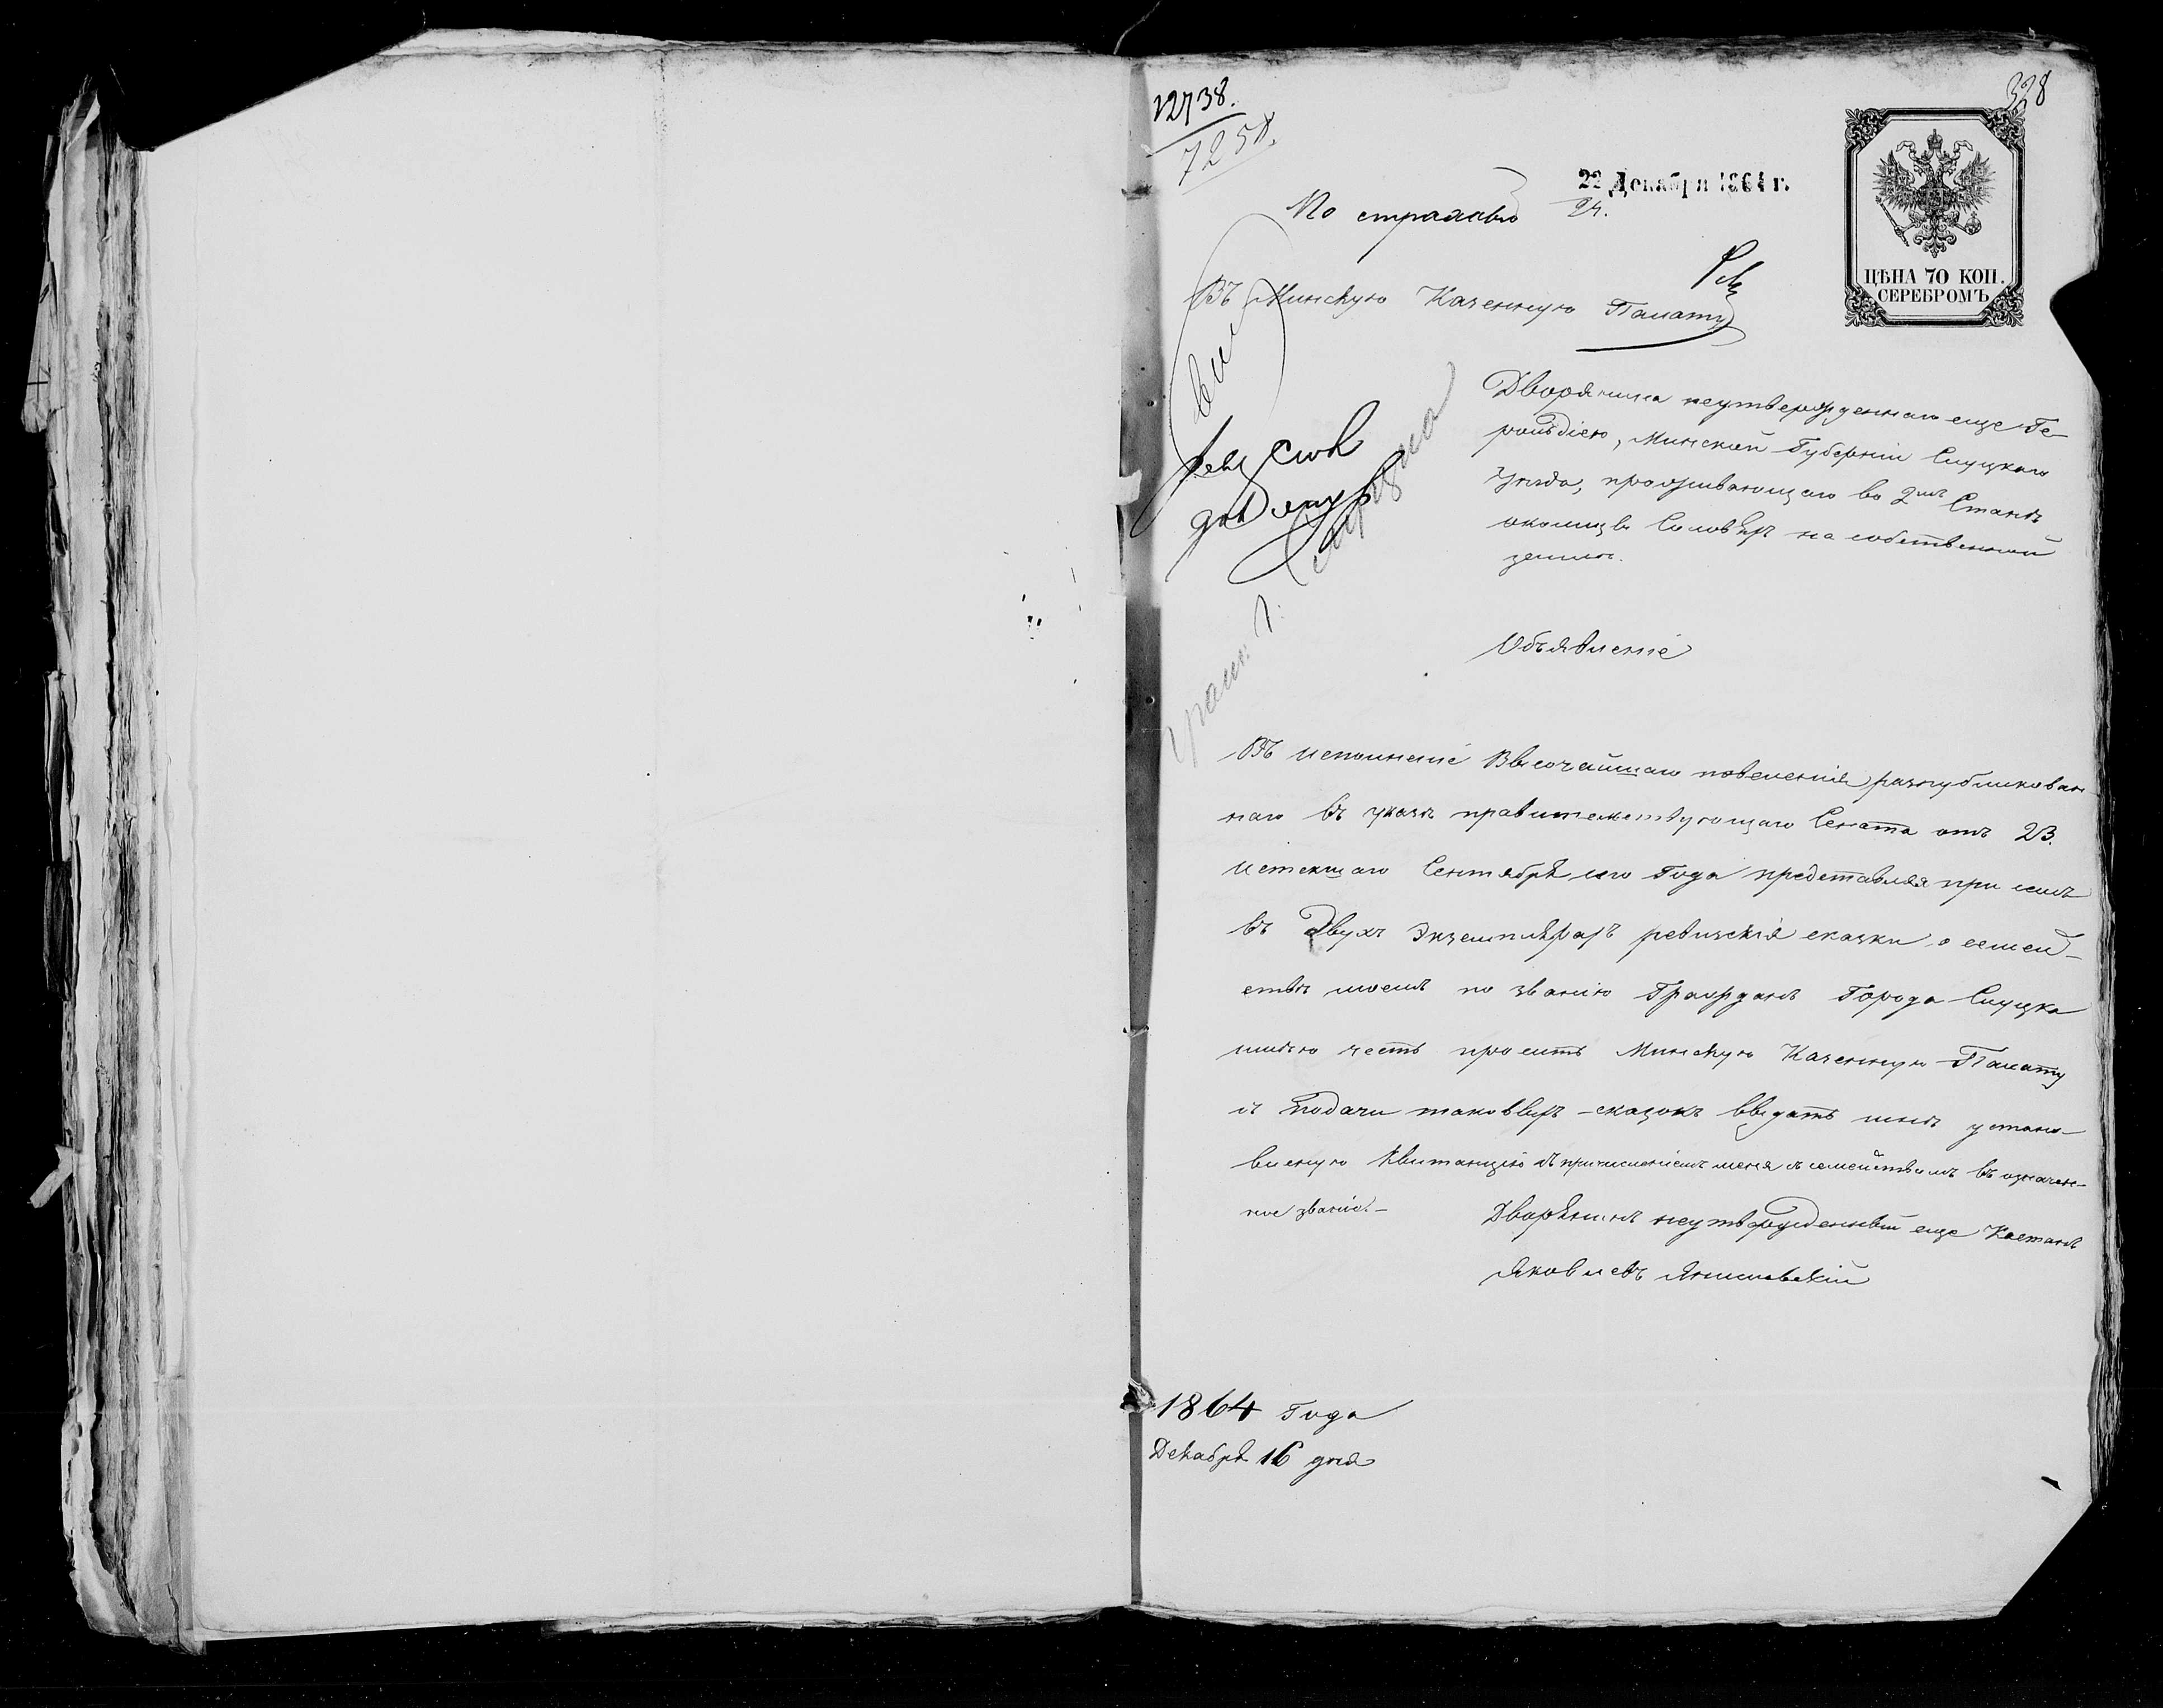 12738.
328
22 Декабря 1864 г.
24.
ЦѢНА 70 КОП.
СЕРЕБРОМЪ
Въ Минскую Казенную Палату
Дворянина неутвержденнаго еще Ге-
рольдіею, Минской Губерніи Слуцкаго
уѣзда, проживающаго во 2мъ Станѣ
околицѣ на собственной
землѣ.
Объявленіе
Въ исполненіе Высочайшаго повеленія распубликован
наго въ указѣ правительствующаго Сената отъ 23.
истекшаго Сентября сего Года представляя при семъ
въ Двухъ Экземплярахъ ревизскія сказки о семей-
ствѣ моемъ по званію Гражданъ Города Слуцка
имѣю честь просить Минскую Казенную Палату
о подачи таковыхъ сказокъ выдать мнѣ устано-
вленую Квитанцію съ причисленіемъ меня съ семействомъ въ означен-
ное званіе.-
Дворянинъ неутвержденный еще Каетанъ
Яковлевъ
1864 Года
Декабря 16 дня